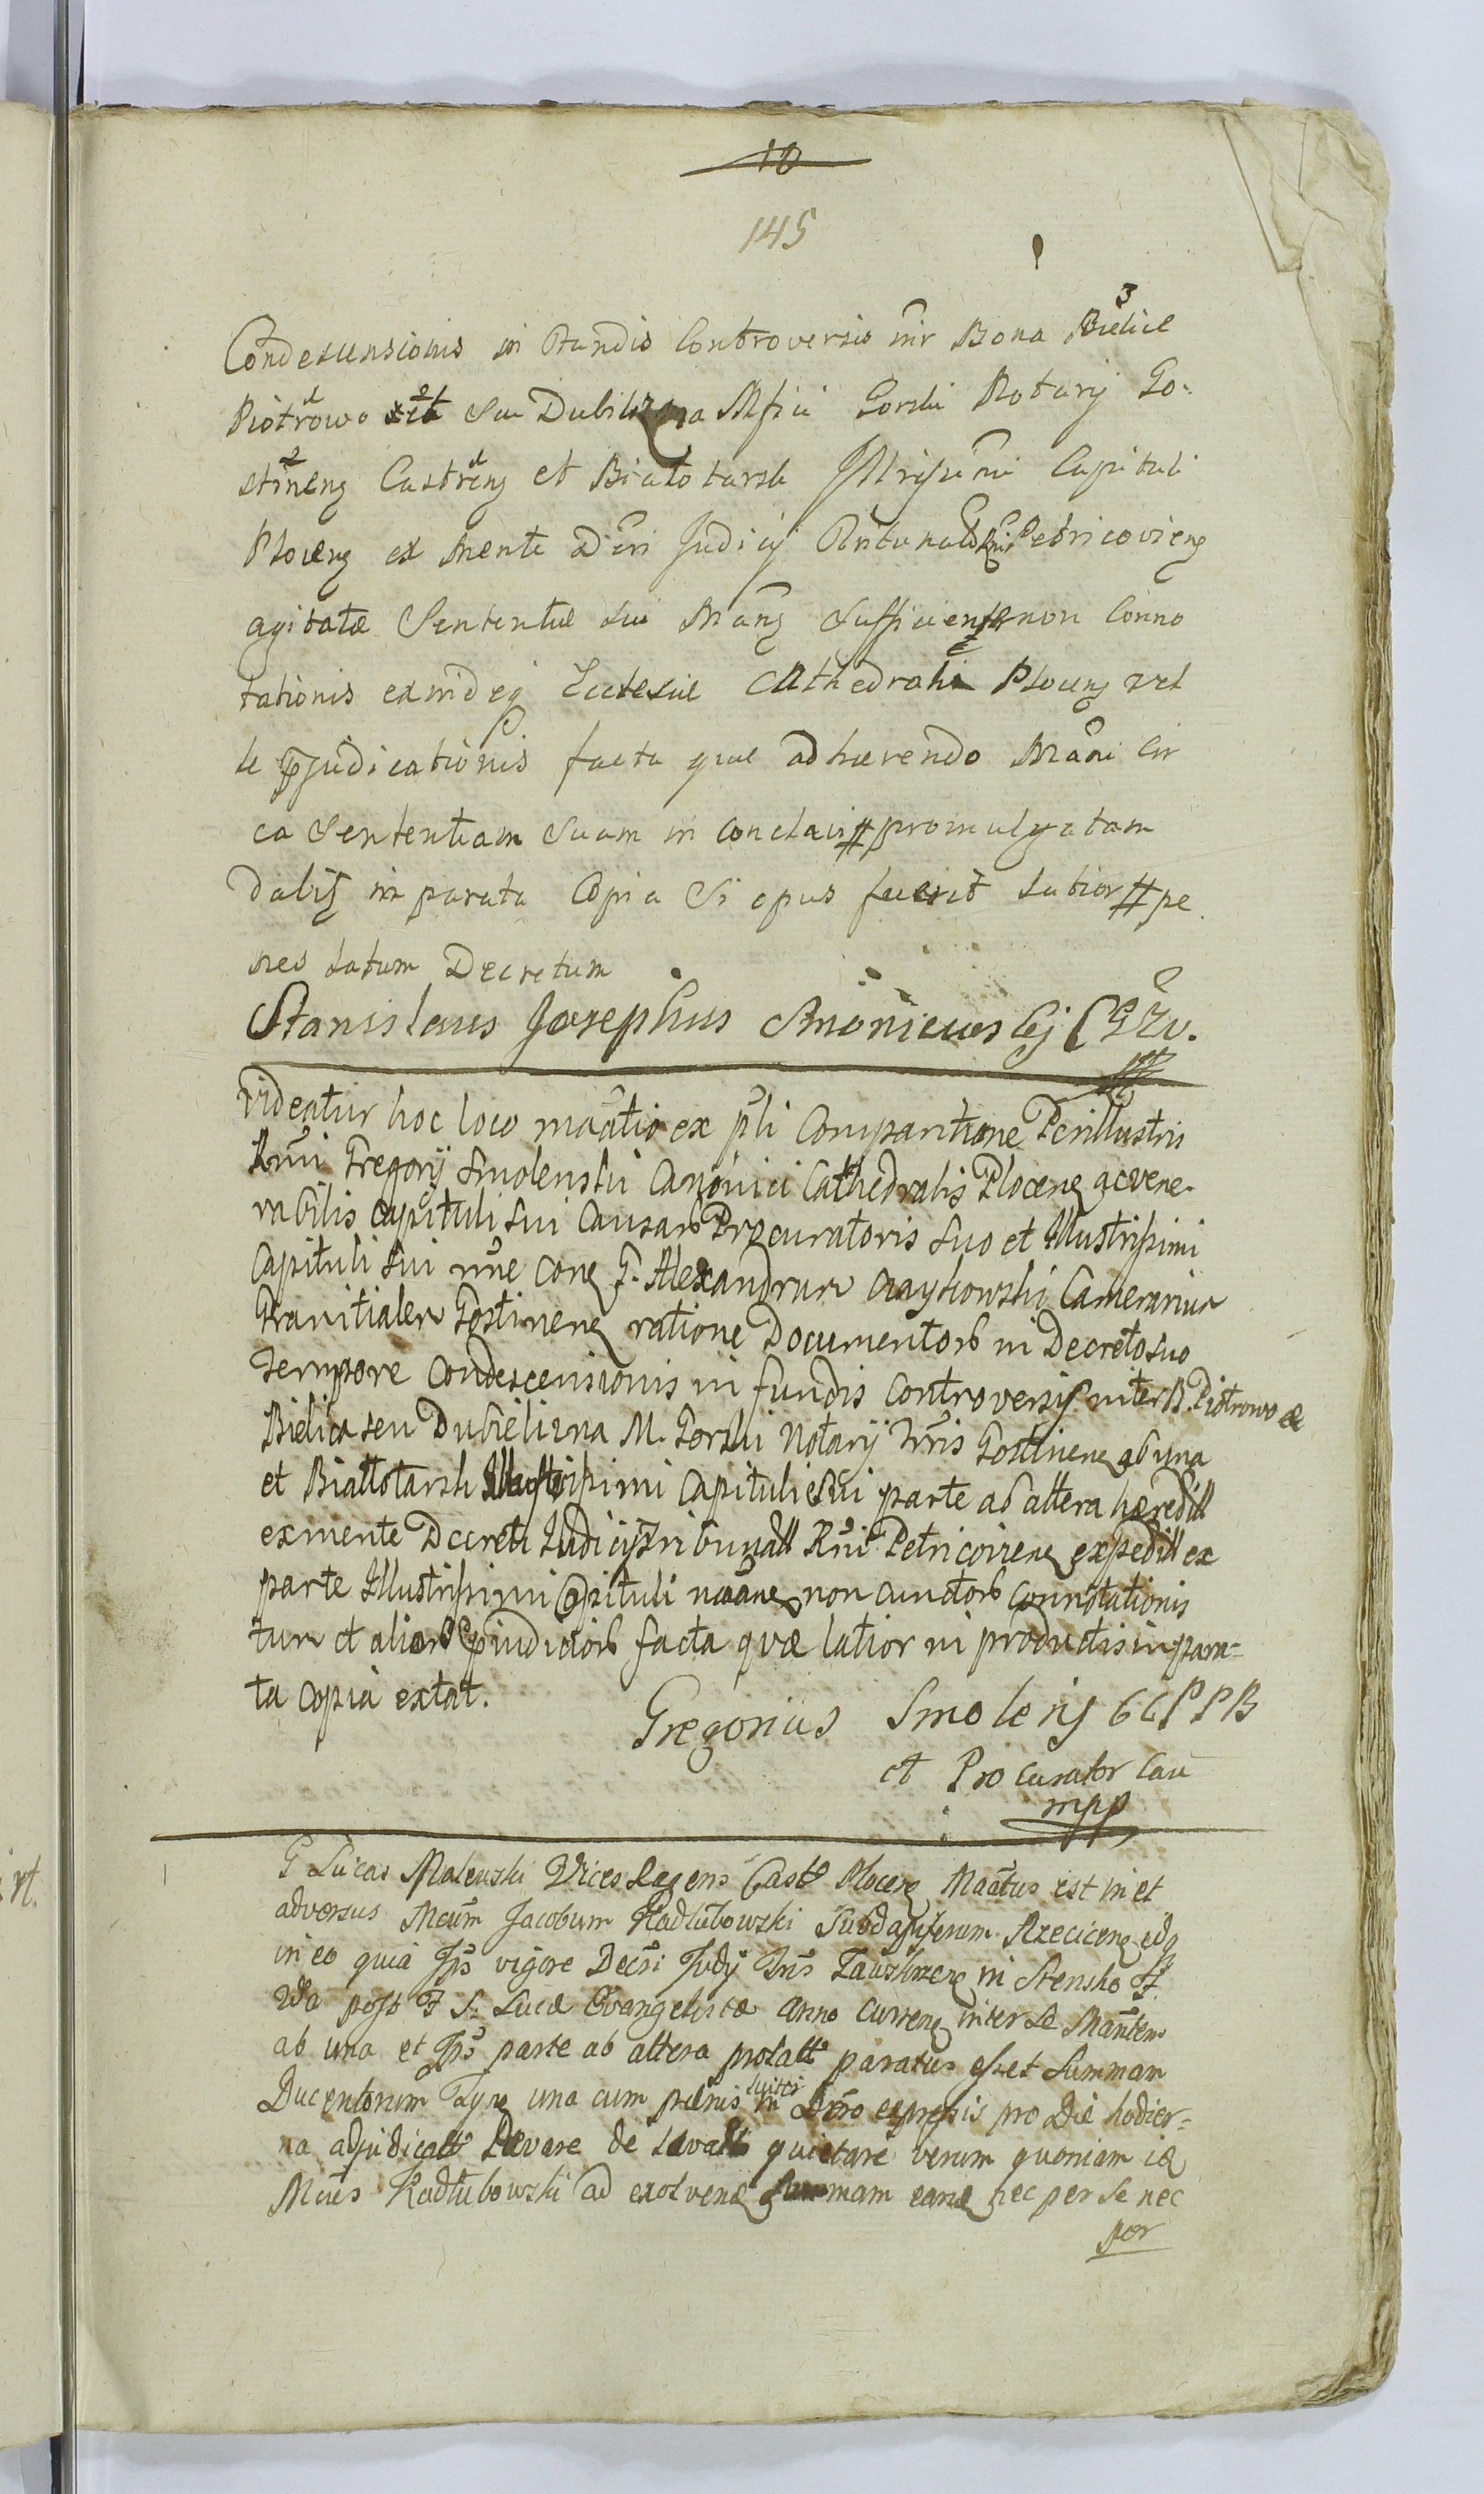 10
145
Condescensionis in Fundis Controversis inr Bona Bielice
Piotrowo et Seu Dubilizna Mfici Gorski Notarij Go-
stineng Castreng et Biatotarsk Illrissimi Capituli
Ploceng ex mente Dcri Judicij Petricovieng
agitatæ Sententiæ Sui non Conno
tationis exindeq Ecclesiæ Cathedralis Ploceng vel
le pjudicationis facta quæ adhærendo Mani Cir
ca Sententiam Suam in conclavi # promulgatam
in parata Copia Si opus fuerit Latior # pe
nes Latum Decretum
Stanislaus Josephus
Videatur hoc loco maatio ex pli Comparitione Perillustris
Rmi Gregorij Smolenski Canonici Cathedralis Ploceng ac vene-
rabilis Capituli Sui Causarb Procuratoris Suo et Illustrissimi
Capituli Sui nne cong G. Alexandrum Czaykowski Camerarium
Granitialem Gostineng ratione Documentorb in Decreto suo
tempore condescensionis in fundis controversis inter B. Piotrowo æ
Bielica seu Dubielizna M. Gorski Notarij Trris Gostineng ab una
et Biallotarsk Illustrissimi Capituli Sui parte ab altera hæredill
ex mente Decreti Judicij Tribunall Rni Petricovieng expedill ex
parte Illustrissimi Capituli non cunctorb connotationis
tum et aliorb pjudiciorb facta quæ latior in productis in para-
ta copia extat.
Gregorius Smoleng
et Procurator Cau
mpp
G Lucas Malewski Vices Regens Cast Ploceng Maatus est in et
adversus Mcum Jacobum Kadlubowski Subdapiferum Rzeciceng idq
in eo quia Ips vigore Decri Judij in Stensko F.
2da post F S. Lucæ Evangelistæ Anno Curreng inter Se Mantem
ab una et Ips parte ab altera prolatt paratus esset Summam
Ducentorum una cum pænis luitis in Dcro expressis pro Die hodier-
na adjudicatt Levare de Levatt quietare verum quoniam id
Mcus Kadlubowski ad exolveng Summam eand nec per Se nec
per